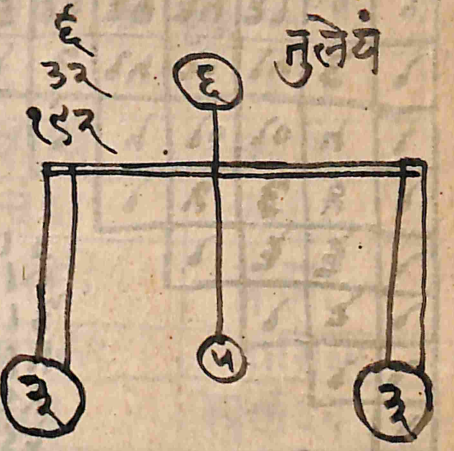 ६
३२
१९२
तुलेयं
६
३
५
३